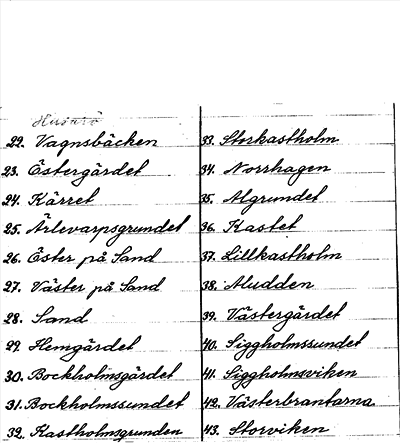 Husarö
22. Vagnsbäcken
23. Östergärdet
24. Kärret
25. Ärlevarpsgrundet
26. Öster på Sand
27. Väster på Sand
28. Sand
29. Hemgärdet
30. Bockholmsgärdet
31. Bockholmssundet
32. Kastholmsgrunden
33. Storkastholm
34. Norrhagen
35. Algrundet
36. Kastet
37. Lillkastholm
38. Aludden
39. Västergärdet
40. Siggholmssundet
41. Siggholmsviken
42. Västerbrantarna
43. Storviken